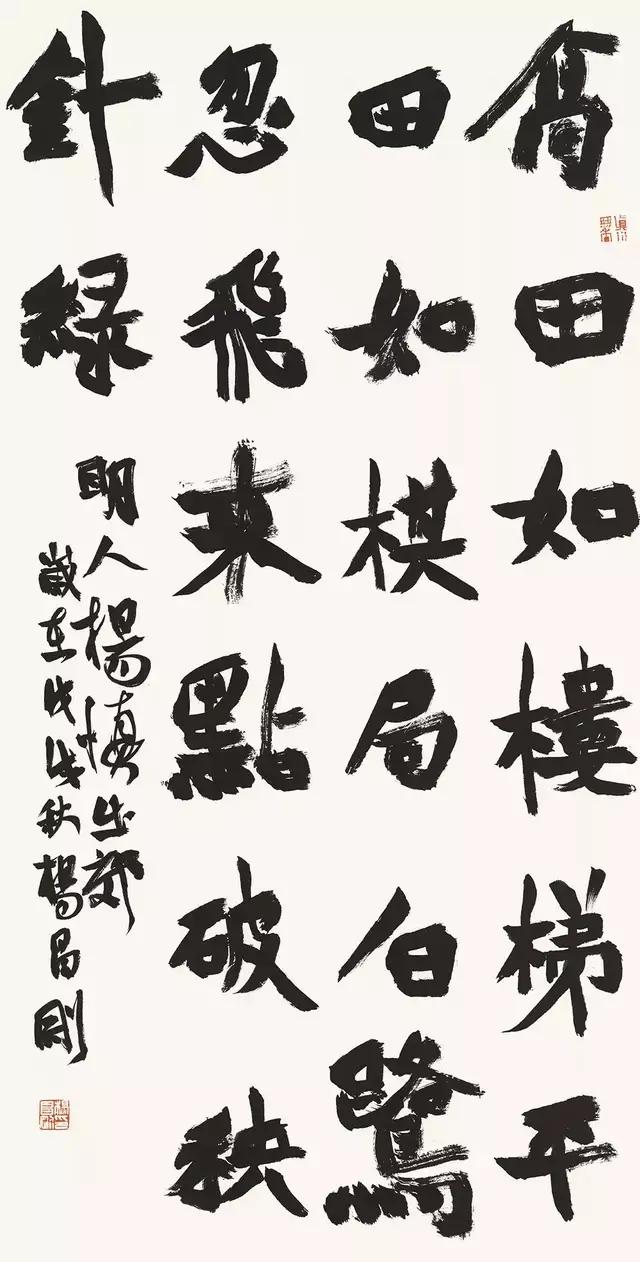 高田如樓梯平
田如棋局白鷺
忽飛来點破秧
針緑
明人楊慎出郊
歲在戊戌秋楊昌剛